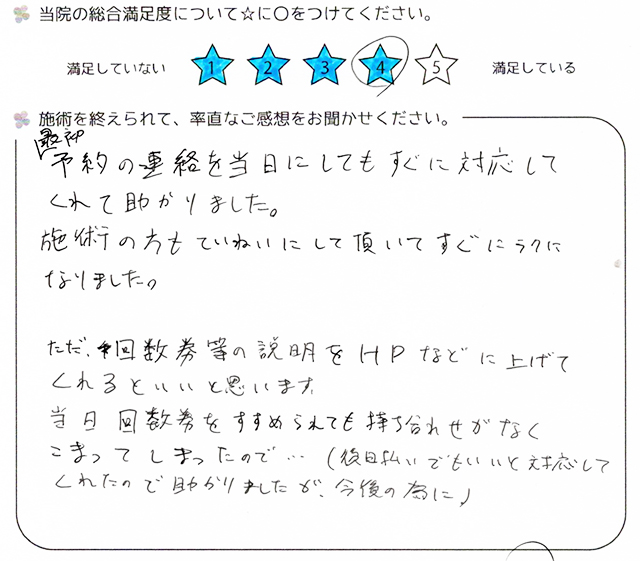 当院の総合満足度について☆に〇をつけてください。
満足していない 1 2 3 4 5 満足している
施術を終えられて、率直なご感想をお聞かせください。
最初
予約の連絡を当日にしてもすぐに対応して
くれて助かりました。
施術の方もていねいにして頂いてすぐにラクに
なりました。
ただ、回数券等の説明をHPなどに上げて
くれるといいと思います。
当日回数券をすすめられても持ち合わせがなく
こまってしまったので…(後日払いでもいいと対応して
くれたので助かりましたが、今後の為に)